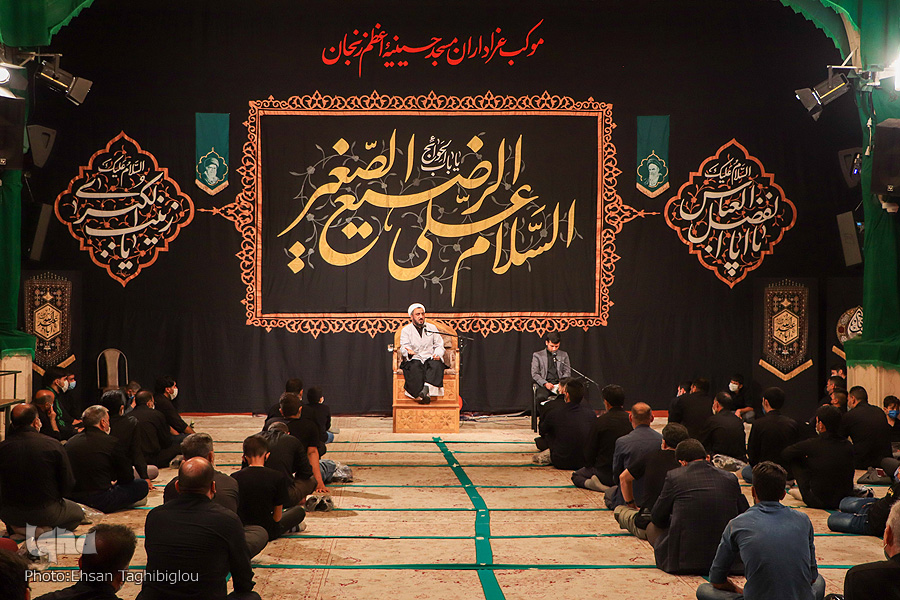 موکب عزاداران مسجد حسینیهٔ اعظم زنجان
یا باب الحوائج
السلام علی الرضیع الصغیر
السلام علیک
یا زینب الکبری
السلام علیک
یا اباالفضل العباس
iqna
Photo:Ehsan Taghibiglou